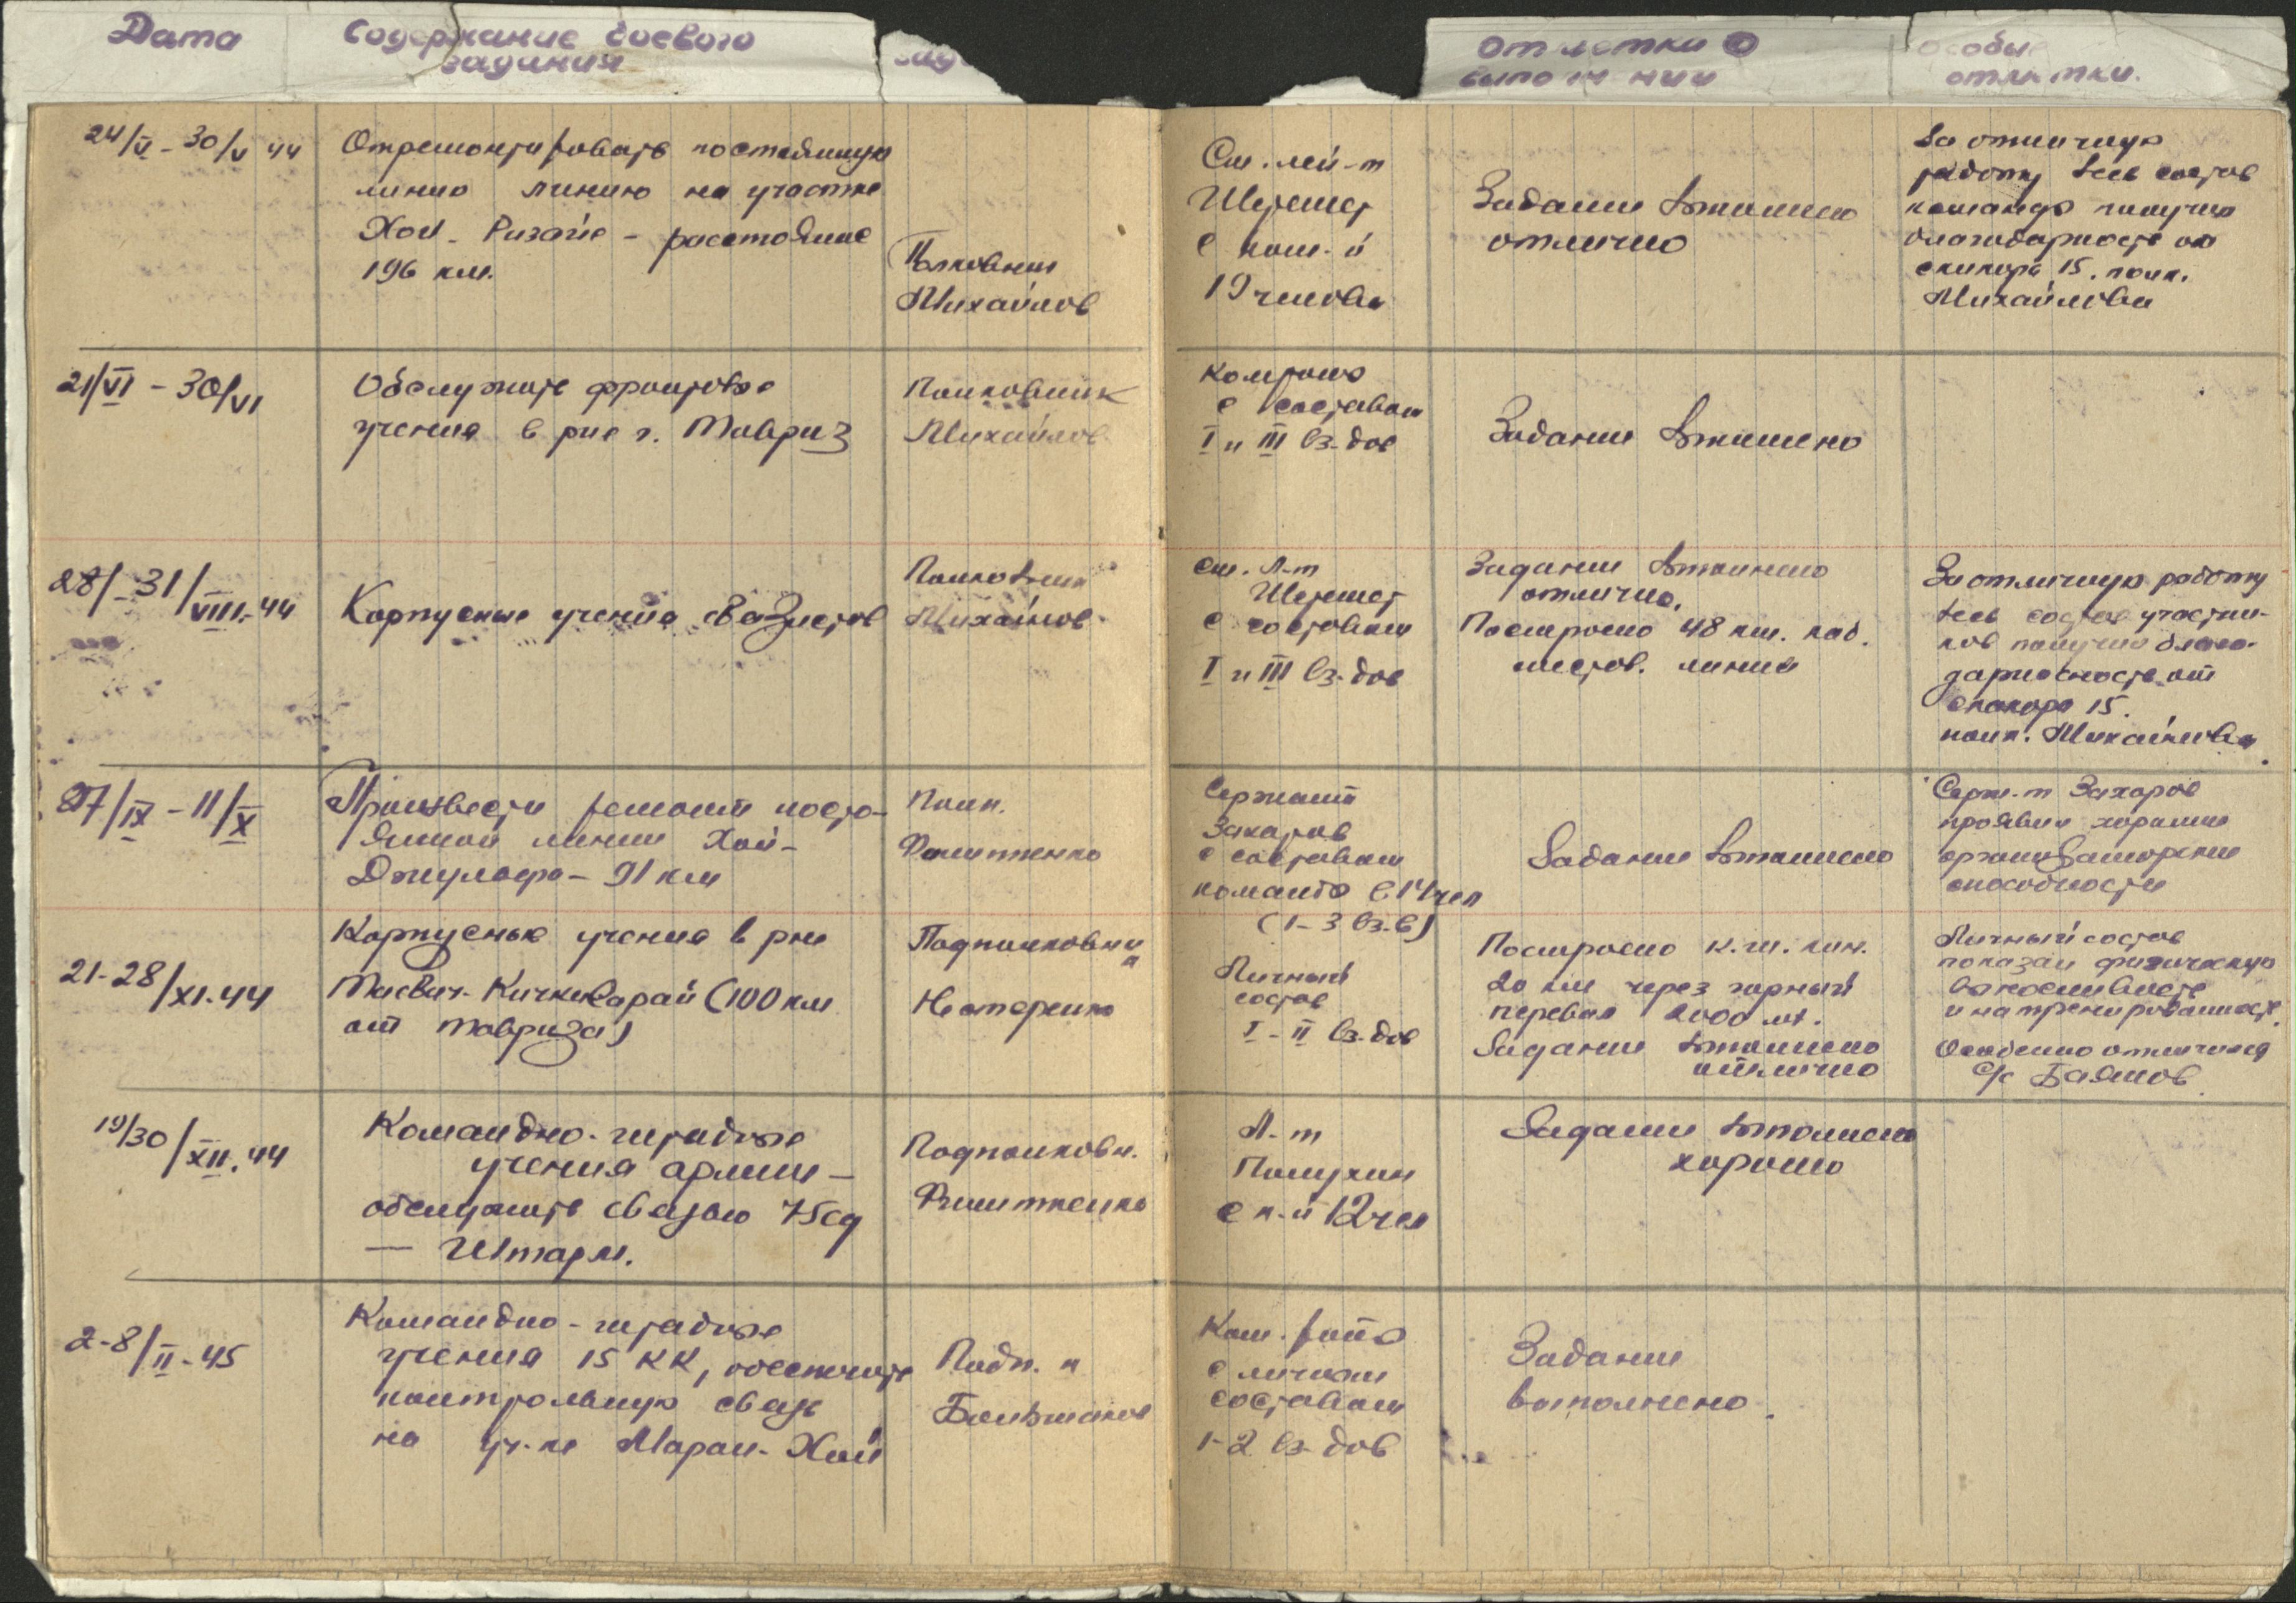 Дата
Содержание боевого
задания
зад
Отметки о
выполнении
Особые
отметки.
24/V - 30/V 44
Отремонтировать постоянную
линию линию на участке
Хой - Ризайе - расстояние
196 км.
Полковник
Михайлов
Ст. лей-т
Шеремет
с ком. й
19 человек
Задание выполнено
отлично
За отличную
работу весь состав
команды получил
благодарность от
15. полк.
Михайлова
21/VI - 30/VI
Обслужить фронтовые
учения в р-не г. Тавриз
Полковник
Михайлов
Комроты
с составом
I и III вз-дов
Задание выполнено
28/ - 31/VIII-44
Корпусные учения связистов
Полковник
Михайлов
Ст. л-т
Шеремет
с составом
I и III вз-дов
Задание выполнено
отлично.
Построено 48 км. каб.
шестов. линии
За отличную работу
весь состав участни-
ков получил благо-
дарность от
15.
полк. Михайлова.
27/IX - 11/X
Произвести ремонт посто-
янной линии Хой-
Джульфа - 91 км
Полк.
Филиппенко
Сержант
Захаров
с составом
команды в 14 чел
(1-3 вз-в)
Задание выполнено
Серж-т Захаров
проявил хорошие
организаторские
способности
21-28/XI.44
Корпусные учения в р-не
Кичкисарай (100 км
от Тавриза)
Подполковник
Нестеренко
Личный
состав
I - II вз-дов
Построено к.ш. лин.
20 км через горный
перевал 2000 мт.
Задание выполнено
отлично
Личный состав
показал физическую
выносливость
и натренированность.
Особенно отличился
с/с Баянов.
19/30/XII.44
Командно-штабные
учения армии -
обслужить связью 75сд
— Штарм.
Подполковн.
Филиппенко
Л-т
Полухин
с к-й 12 чел
Задание выполнено
хорошо
2-8/II-45
Командно-штабные
учения 15 КК, обеспечить
контрольную связь
на уч-ке Маран-Хой
Подп. к
Большаков
Ком. роты
с личным
составом
1-2 вз-дов
Задание
выполнено.